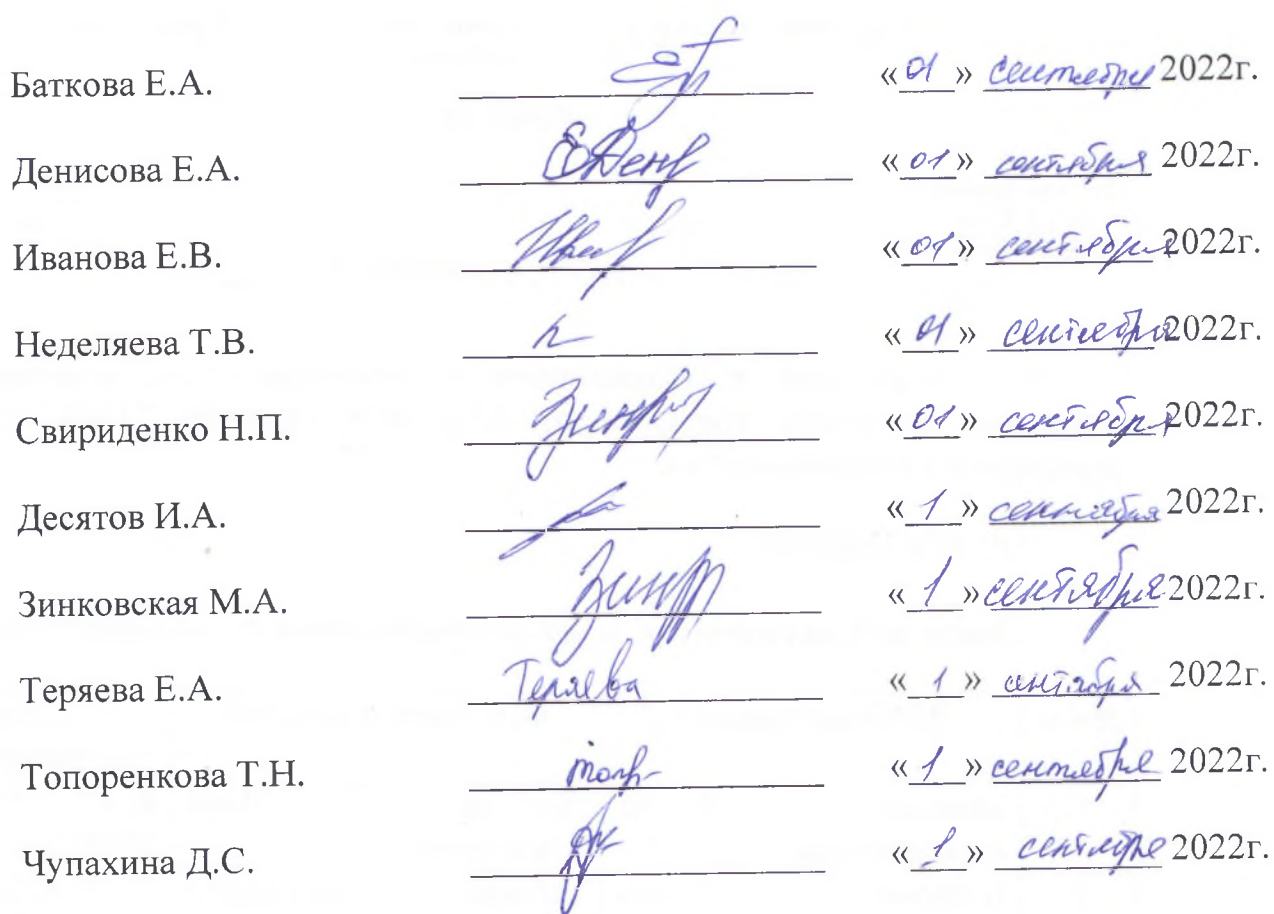 Баткова Е.А. «01» сентября 2022г.
Денисова Е.А. «01» сентября 2022г.
Иванова Е.В. «01» сентября 2022г.
Неделяева Т.В. «01» сентября 2022г.
Свириденко Н.П. «01» сентября 2022г.
Десятов И.А. «1» сентября 2022г.
Зинковская М.А. «1» сентября 2022г.
Теряева Е.А. Теряева «1» сентября 2022г.
Топоренкова Т.Н. «1» сентября 2022г.
Чупахина Д.С. «1» сентября 2022г.